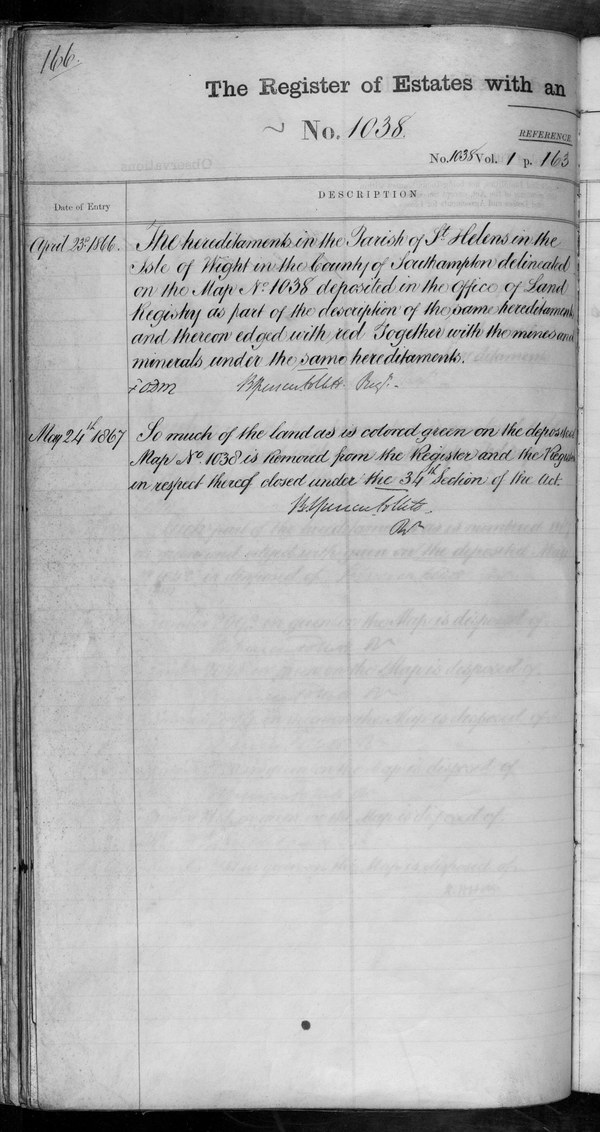 166.
The Register of Estates with an
No. 1038.
REFERENCE
No. 1038 Vol. 1 p. 163
Observations
DESCRIPTION
Date of Entry
April 23d. 1866. The hereditaments in the Parish of St. Helens in the
Isle of Wight in the County of Southampton delineated
on the Map No. 1038 deposited in the Office of Land
Registry as part of the description of the same hereditaments
and thereon edged with red Together with the mines and
minerals under the same hereditaments.
Regr.
May 24th 1867 So much of the land as is colored green on the deposited
Map No. 1038 is removed from the Register and the Register
in respect thereof closed under the 34th Section of the Act.
Rr